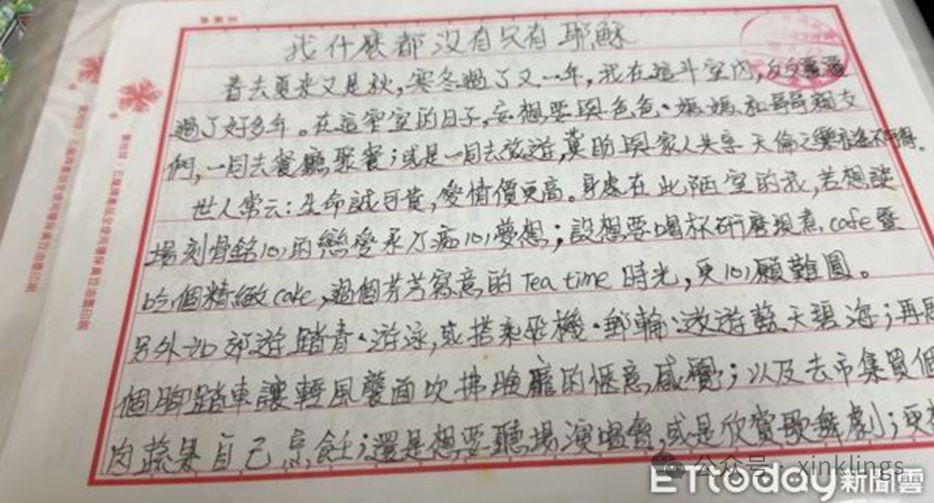 我什麼都没有只有耶穌
春去夏來又是秋，寒冬過了又一年，我在這斗室內，反反覆覆
過了好多年。在這窄室的日子，妄想要與爸爸、媽媽和哥哥親友
們，一同去餐廳聚餐；或是一同去旅遊，冀盼與家人共享天倫之樂永遠不可得。
世人常云：生命誠可貴，愛情價更高。身處在此陋室的我，若想談
場刻骨銘心的戀愛永才痴心夢想；設想要喝杯研磨現煮 cafe 暨
吃個精緻 cake，過個芳芳寫意的 Tea time 時光，更心願難圓。
另外如郊遊踏青、游泳，或搭乘飛機、郵輪遨遊藍天碧海；再
個脚踏車讓輕風襲面吹拂臉龐的愜意感覺；以及去市集買個
肉蔬果自己烹飪；還是想要聽場演唱會，或是欣賞歌舞劇；更
ETtoday新聞雲
公众号 xinklings